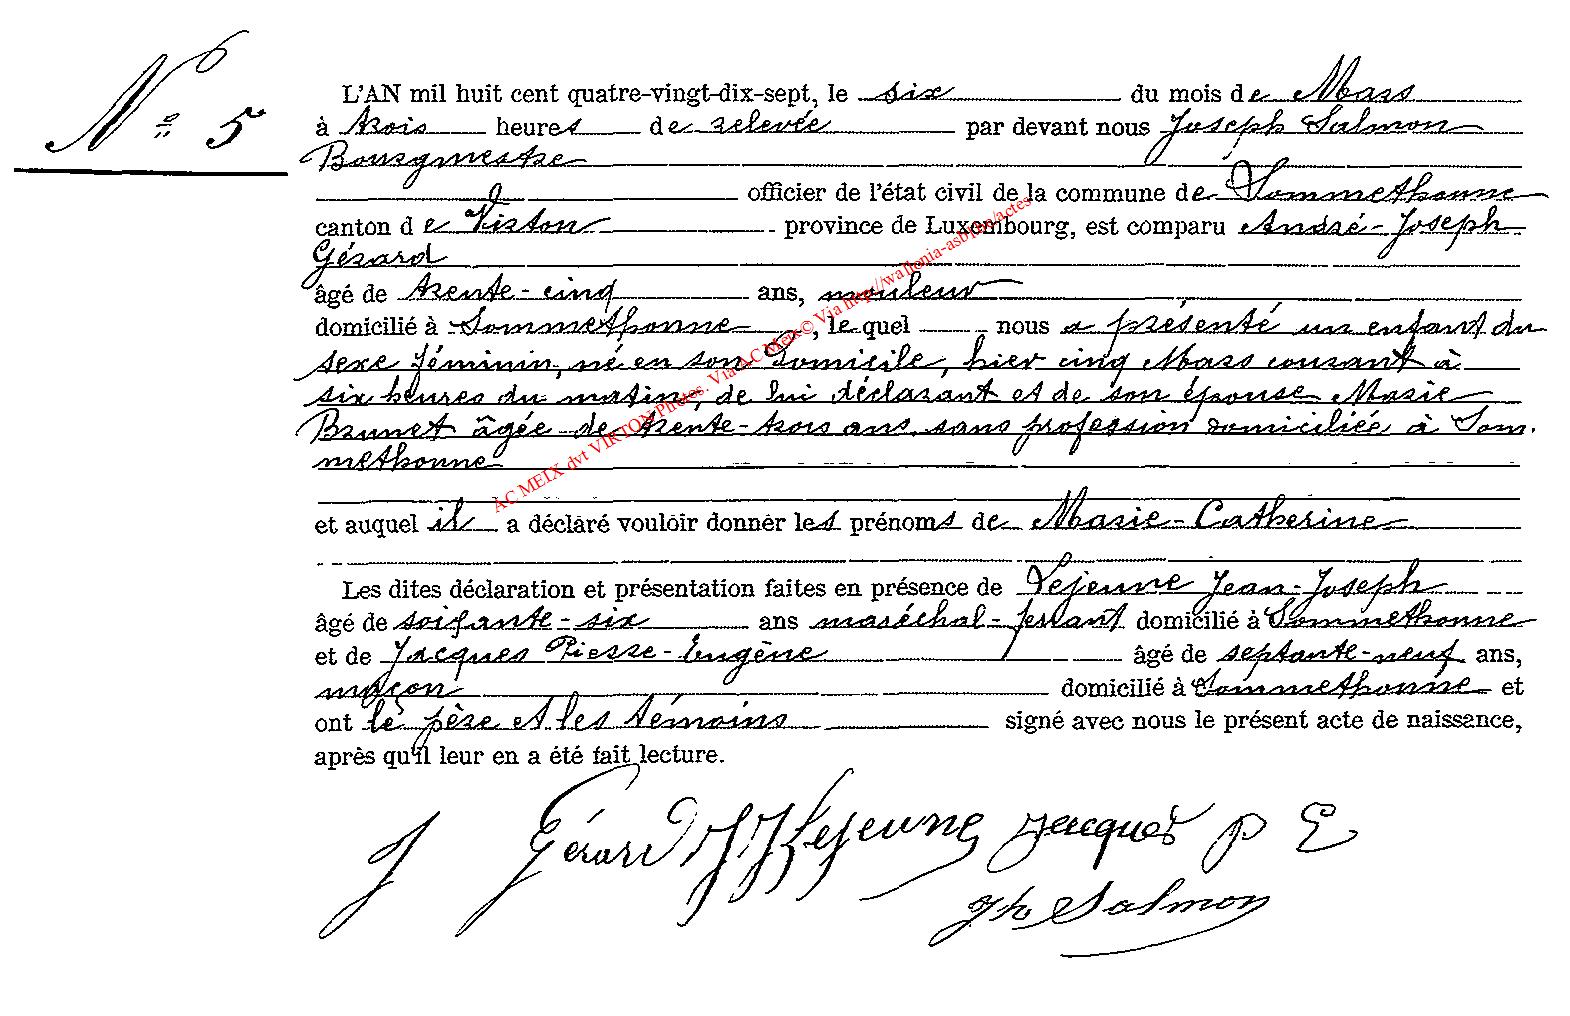 N° 5
L'AN mil huit cent quatre-vingt-dix-sept, le six du mois de Mars
à trois heures de relevée par devant nous Joseph Salmon
Bourgmestre
officier de l'état civil de la commune de Sommethonne
canton de Virton province de Luxembourg, est comparu André-Joseph
Gérard
âgé de trente-cinq ans, mouleur
domicilié à Sommethonne, le quel nous a présenté un enfant du
sexe féminin, né en son Domicile, hier cinq Mars courant à
six heures du matin, de lui déclarant et de son épouse Marie
Brunet âgée de trente-trois ans, sans profession domiciliée à Som.
methonne
et auquel il a déclaré vouloir donner les prénoms de Marie-Catherine
Les dites déclaration et présentation faites en présence de Lejeune Jean-Joseph
âgé de soixante-six ans maréchal-ferrant domicilié à Sommethonne
et de Jacques Pierre-Eugène âgé de septante-neuf ans,
maçon domicilié à Sommethonne et
ont le père et les témoins signé avec nous le présent acte de naissance,
après qu'il leur en a été fait lecture.
J Gérard J J Lejeune Jacques P E
Jh Salmon
AC MEIX dvt VIRTON Photos. Via AC Meix© Via http://wallonia-asbl.be/actes